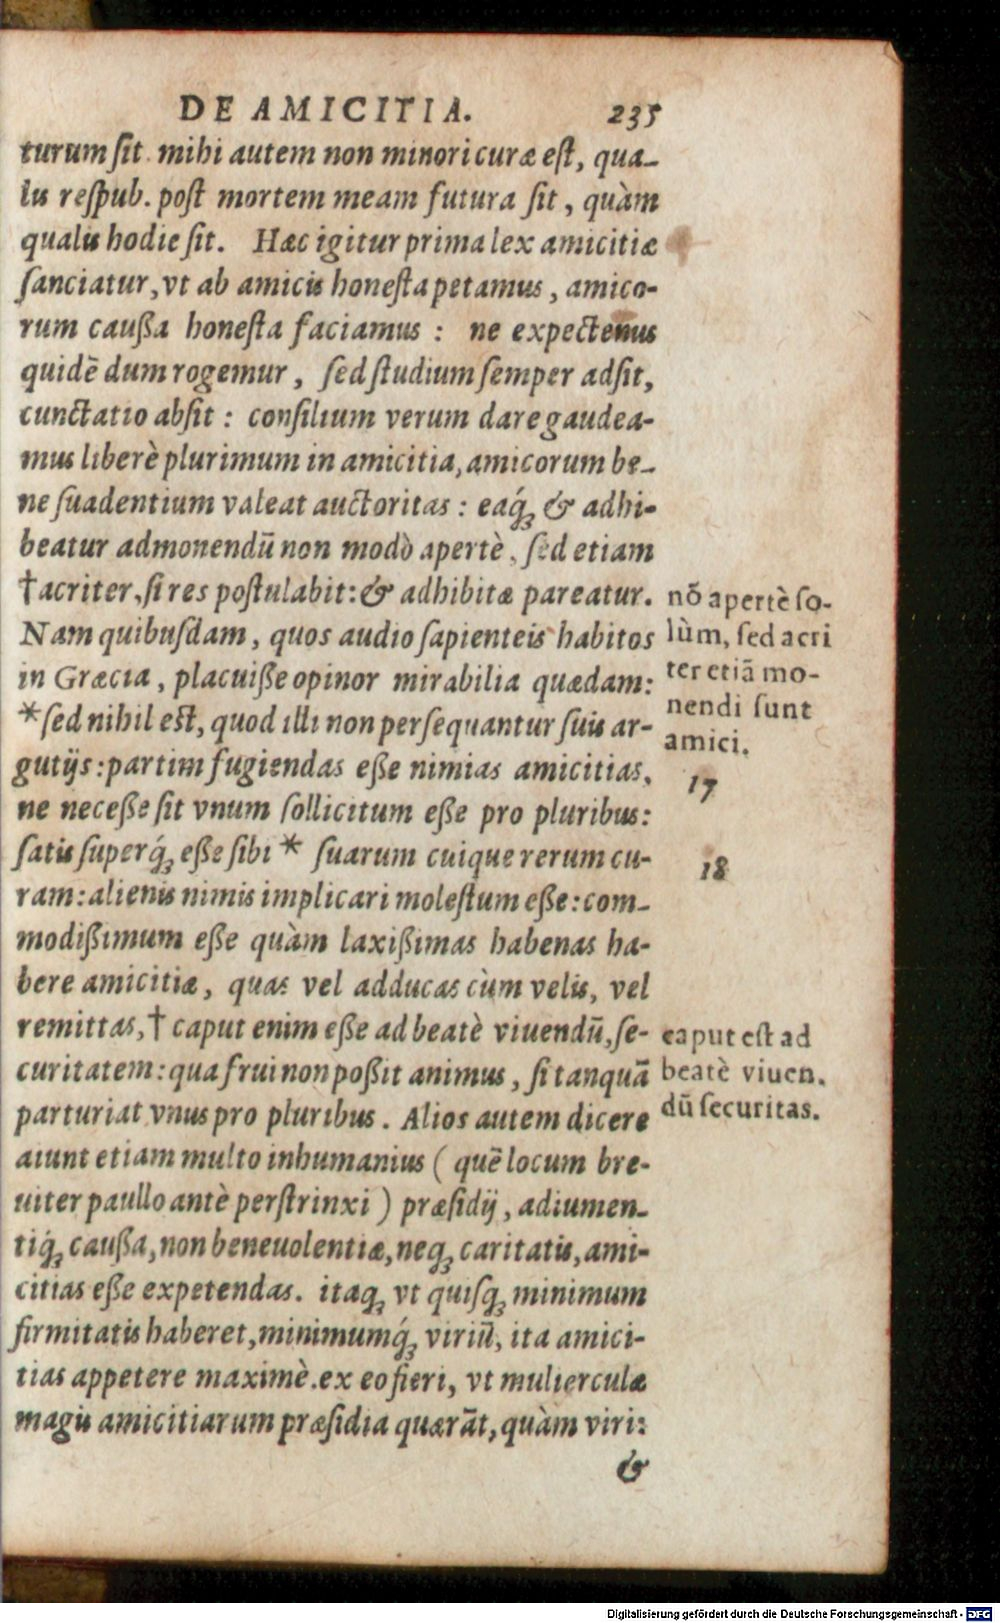 DE AMICITIA. 235
turum sit. mihi autem non minori curæ est, qua-
lis respub. post mortem meam futura sit, quàm
qualis hodie sit. Hæc igitur prima lex amicitiæ
sanciatur, vt ab amicis honesta petamus, amico-
rum caußa honesta faciamus: ne expectemus
quidē dum rogemur, sed studium semper adsit,
cunctatio absit: consilium verum dare gaudea-
mus liberè plurimum in amicitia, amicorum be-
ne suadentium valeat auctoritas: eaq́; & adhi-
beatur admonendū non modò apertè, sed etiam
†acriter, si res postulabit: & adhibitæ pareatur.
Nam quibusdam, quos audio sapienteis habitos
in Græcia, placuiße opinor mirabilia quædam:
*sed nihil est, quod illi non persequantur suis ar-
gutijs: partim fugiendas eße nimias amicitias,
ne neceße sit vnum sollicitum eße pro pluribus:
satis superq́; eße sibi * suarum cuique rerum cu-
ram: alienis nimis implicari molestum eße: com-
modißimum eße quàm laxißimas habenas ha-
bere amicitiæ, quas vel adducas cùm velis, vel
remittas, † caput enim eße ad beatè viuendū, se-
curitatem: qua frui non poßit animus, si tanquā
parturiat vnus pro pluribus. Alios autem dicere
aiunt etiam multo inhumanius (quē locum bre-
uiter paullo antè perstrinxi) præsidij, adiumen-
tiq́; caußa, non beneuolentiæ, neq; caritatis, ami-
citias eße expetendas. itaq; vt quisq; minimum
firmitatis haberet, minimumq́; viriū, ita amici-
tias appetere maximè. ex eo fieri, vt mulierculæ
magis amicitiarum præsidia quærāt, quàm viri:
&
nō apertè so-
lùm, sed acri
ter etiā mo-
nendi sunt
amici.
17
18
caput est ad
beatè viuen.
dū securitas.
Digitalisierung gefördert durch die Deutsche Forschungsgemeinschaft - DFG